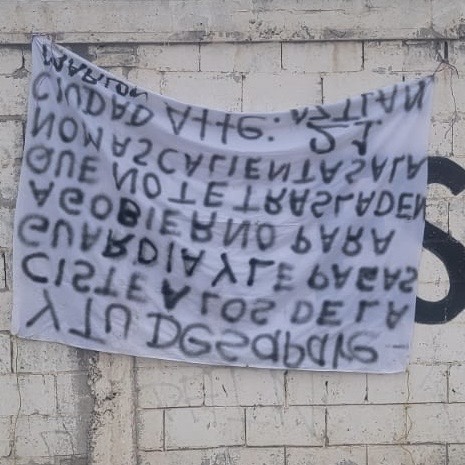 Y TU DESAPARE-
CISTE A LOS DE LA
GUARDIA Y LE PAGAS
A GOBIERNO PARA
QUE NO TE TRASLADEN
NOMAS CALIENTAS A LA
21
CIUDAD ATTE: AZTLAN
MARLON